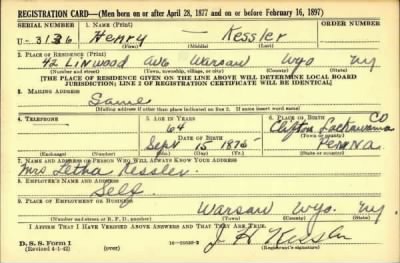 REGISTRATION CARD—(Men born on or after April 28, 1877 and on or before February 16, 1897)
SERIAL NUMBER 1. NAME (Print) ORDER NUMBER
U-3136 Henry — Kessler
(First) (Middle) (Last)
2. PLACE OF RESIDENCE (Print)
42 Linwood Ave Warsaw Wyo NY
(Number and street) (Town, township, village, or city) (County) (State)
[THE PLACE OF RESIDENCE GIVEN ON THE LINE ABOVE WILL DETERMINE LOCAL BOARD
JURISDICTION; LINE 2 OF REGISTRATION CERTIFICATE WILL BE IDENTICAL]
3. MAILING ADDRESS
Same
[Mailing address if other than place indicated on line 2. If same insert word same]
4. TELEPHONE 5. AGE IN YEARS 6. PLACE OF BIRTH
64 Clifton Lackawanna CO
DATE OF BIRTH (Town or county)
Sept 15 1876 Penna
(Exchange) (Number) (Mo.) (Day) (Yr.) (State or country)
7. NAME AND ADDRESS OF PERSON WHO WILL ALWAYS KNOW YOUR ADDRESS
Mrs Letha Kessler
8. EMPLOYER'S NAME AND ADDRESS
Self
9. PLACE OF EMPLOYMENT OR BUSINESS
Warsaw Wyo. NY
(Number and street or R. F. D. number) (Town) (County) (State)
I AFFIRM THAT I HAVE VERIFIED ABOVE ANSWERS AND THAT THEY ARE TRUE.
D. S. S. Form 1
(Revised 4-1-42) (over) J H Kessler
(Registrant's signature)